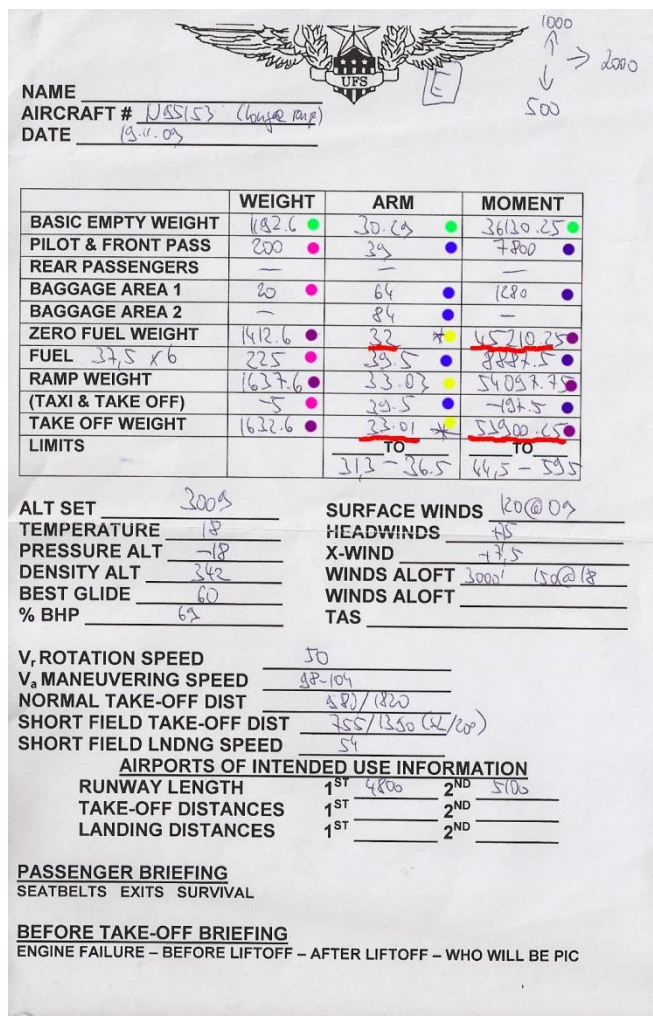 1000
→ 2000
500
UFS
E
NAME
AIRCRAFT #
DATE 19.11.09
WEIGHT ARM MOMENT
BASIC EMPTY WEIGHT 1192.6 30.29 36130.25
PILOT & FRONT PASS 200 39 7800
REAR PASSENGERS — — —
BAGGAGE AREA 1 20 64 1280
BAGGAGE AREA 2 — 84 —
ZERO FUEL WEIGHT 1412.6 32 * 45210.25
FUEL 37,5 x6 225 39.5 8887.5
RAMP WEIGHT 1637.6 33.03 54097.75
(TAXI & TAKE OFF) -5 39.5 -197.5
TAKE OFF WEIGHT 1632.6 33.01 * 53900.25
LIMITS TO TO
31,3 - 36.5 44,5 - 59,5
ALT SET 3009 SURFACE WINDS 120@09
TEMPERATURE 18 HEADWINDS +5
PRESSURE ALT -18 X-WIND +7,5
DENSITY ALT 342 WINDS ALOFT 3000' 150@18
BEST GLIDE 60 WINDS ALOFT
% BHP 69 TAS
Vr ROTATION SPEED 50
Va MANEUVERING SPEED 98-104
NORMAL TAKE-OFF DIST 980/1820
SHORT FIELD TAKE-OFF DIST 755/1390 (SL/20°)
SHORT FIELD LNDNG SPEED 54
AIRPORTS OF INTENDED USE INFORMATION
RUNWAY LENGTH 1ST 4800 2ND 5100
TAKE-OFF DISTANCES 1ST 2ND
LANDING DISTANCES 1ST 2ND
PASSENGER BRIEFING
SEATBELTS EXITS SURVIVAL
BEFORE TAKE-OFF BRIEFING
ENGINE FAILURE – BEFORE LIFTOFF – AFTER LIFTOFF – WHO WILL BE PIC